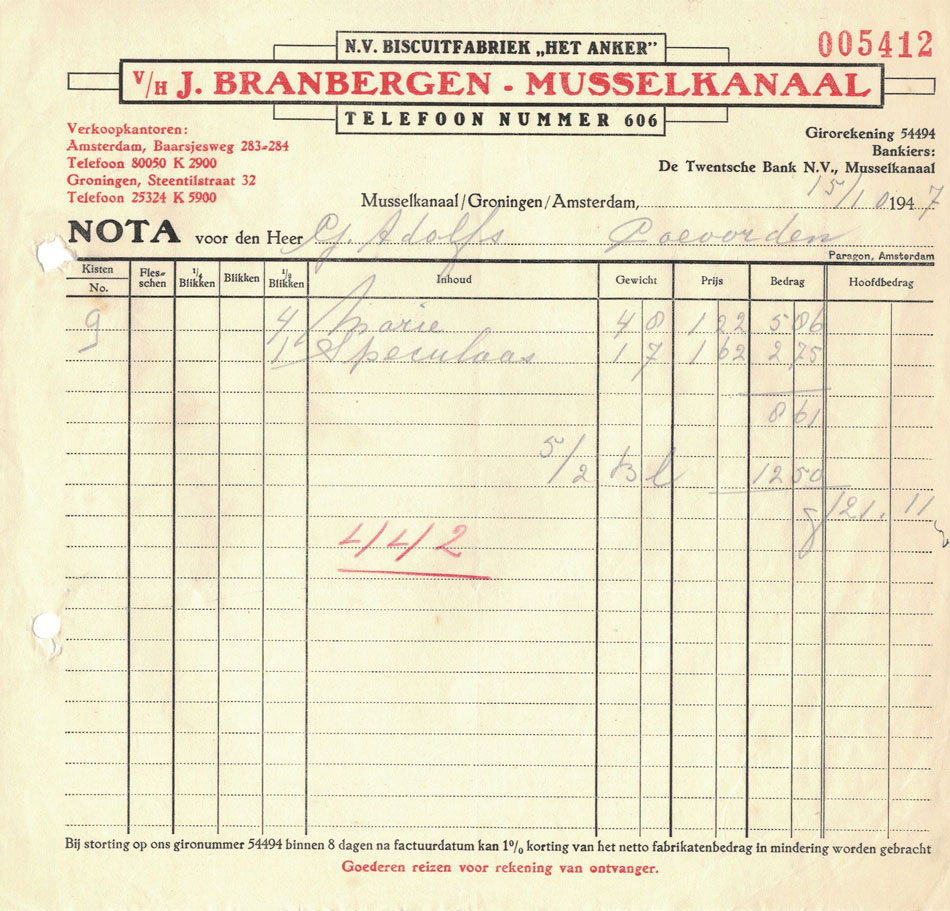 005412
N.V. BISCUITFABRIEK „HET ANKER”
V/H J. BRANBERGEN - MUSSELKANAAL
TELEFOON NUMMER 606
Verkoopkantoren:
Amsterdam, Baarsjesweg 283-284
Telefoon 80050 K 2900
Groningen, Steentilstraat 32
Telefoon 25324 K 5900
Girorekening 54494
Bankiers:
De Twentsche Bank N.V., Musselkanaal
Musselkanaal/Groningen/Amsterdam, 15/10 1947
NOTA voor den Heer G. Adolfs Coevorden
Paragon, Amsterdam
Kisten No. Fles-schen 1/4 Blikken Blikken 1/2 Blikken Inhoud Gewicht Prijs Bedrag Hoofdbedrag
9 4/ Marie 4 8 1 22 5 86
1/ Speculaas 1 7 1 62 2 75
8 61
5/2 Bl 12 50
21.11
4/4/2
Bij storting op ons gironummer 54494 binnen 8 dagen na factuurdatum kan 1% korting van het netto fabrikatenbedrag in mindering worden gebracht
Goederen reizen voor rekening van ontvanger.